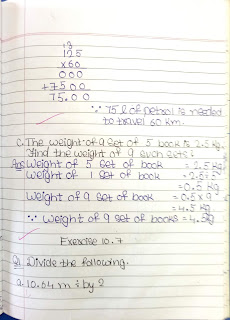 125
x60
000
+7500
75.00
∵ 75 l of petrol is needed
to travel 60 km.
C. The weight of a set of 5 book is 2.5 kg.
find the weight of 9 such sets:
Ans Weight of 5 set of book = 2.5 kg
Weight of 1 set of book = 2.5÷5
= 0.5 kg
Weight of 9 set of book = 0.5 x 9
= 4.5 kg
∵ Weight of 9 set of books = 4.5 kg
Exercise 10.7
Q. Divide the following.
a. 10.64 m ÷ by 2